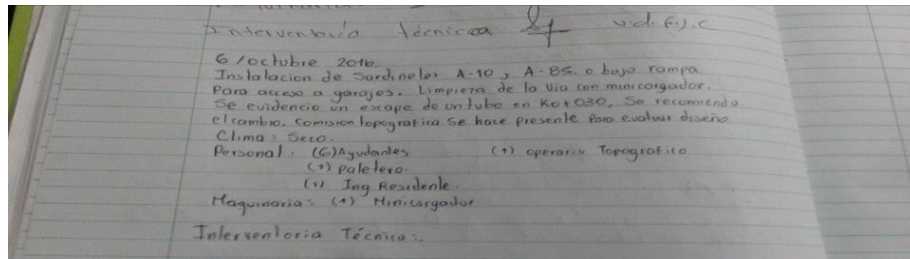 Interventoria técnica U.d. F.J.C
6/octubre 2016.
Instalacion de Sardineles A-10 y A-85. o bajo rampa
Para acceso a garajes. Limpieza de la Via con minicargador.
Se evidencio un escape de un tubo en K0+030, Se recomienda
el cambio, comision topografica Se hace presente Para evaluar diseño
Clima: Seco.
Personal: (6) Ayudantes (1) operario Topografico
(1) Paletero.
(1) Ing Residente.
Maquinaria: (1) Minicargador
Interventoria Técnica:.